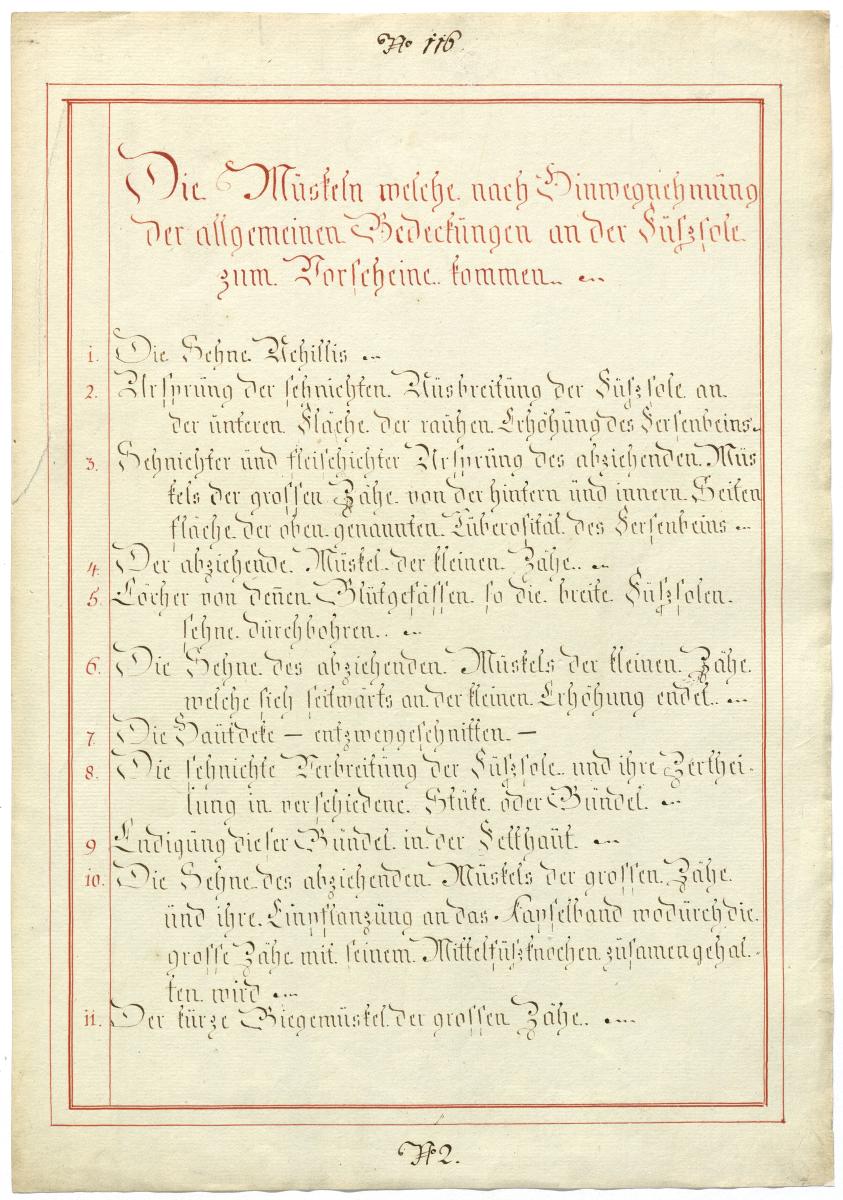 No 116
Die Müskeln welche nach Hinwegnehmüng
der allgemeinen Bedeckungen an der Füszsole
zum Vorscheine kommen
1. Die Sehne Achillis
2. Ursprüng der sehnichten Aüsbreitüng der Füszsole an
der ünteren Fläche der raühen Erhöhüng des Fersenbeins
3. Sehnichter ünd fleischichter Ursprüng des abziehenden Müs
kels der grossen Zähe von der hintern ünd innern Seiten
fläche der oben genannten Tüberosität des Fersenbeins
4. Der abziehende Müskel der kleinen Zähe
5. Löcher von denen Blütgefässen so die breite Füszsolen
sehne dürchbohren
6. Die Sehne des abziehenden Müskels der kleinen Zähe
welche sich seitwärts an der kleinen Erhöhüng endet
7. Die Haütdeke — entzweygeschnitten —
8. Die sehnichte Verbreitüng der Füszsole und ihre Zerthei-
lüng in verschiedene Stüke oder Bündel
9 Endigüng dieser Bündel in der Fetthaüt
10. Die Sehne des abziehenden Müskels der grossen Zähe
ünd ihre Einpflanzüng an das Kapselband wodürch die
grosse Zähe mit seinem Mittelfüszknochen züsamen gehal-
ten wird
11. Der kürze Biegemüskel der grossen Zähe
No 2.